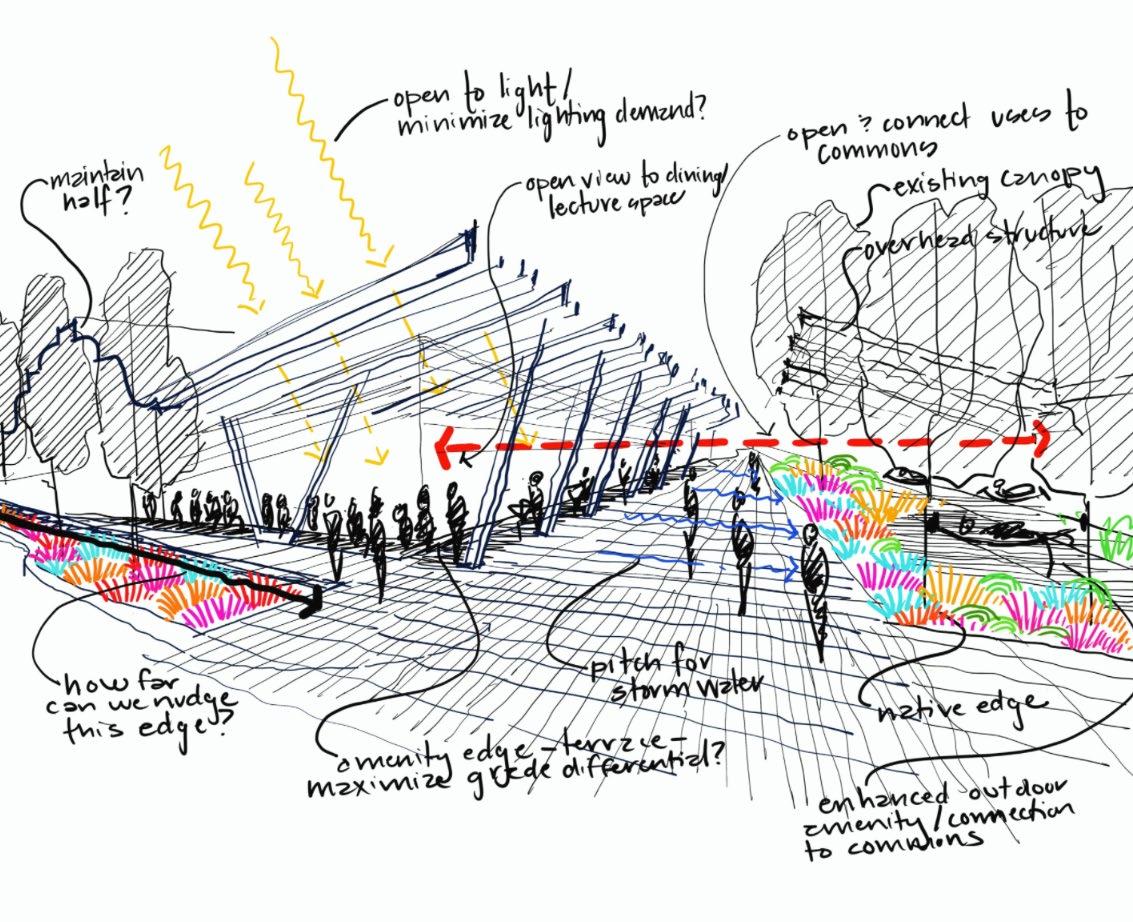 open to light/
minimize lighting demand?
maintain
half?
open view to dining/
lecture space
open & connect uses to
commons
existing canopy
overhead structure
how far
can we nudge
this edge?
amenity edge – terrace –
maximize grade differential?
pitch for
storm water
native edge
enhanced outdoor
amenity/connection
to commons